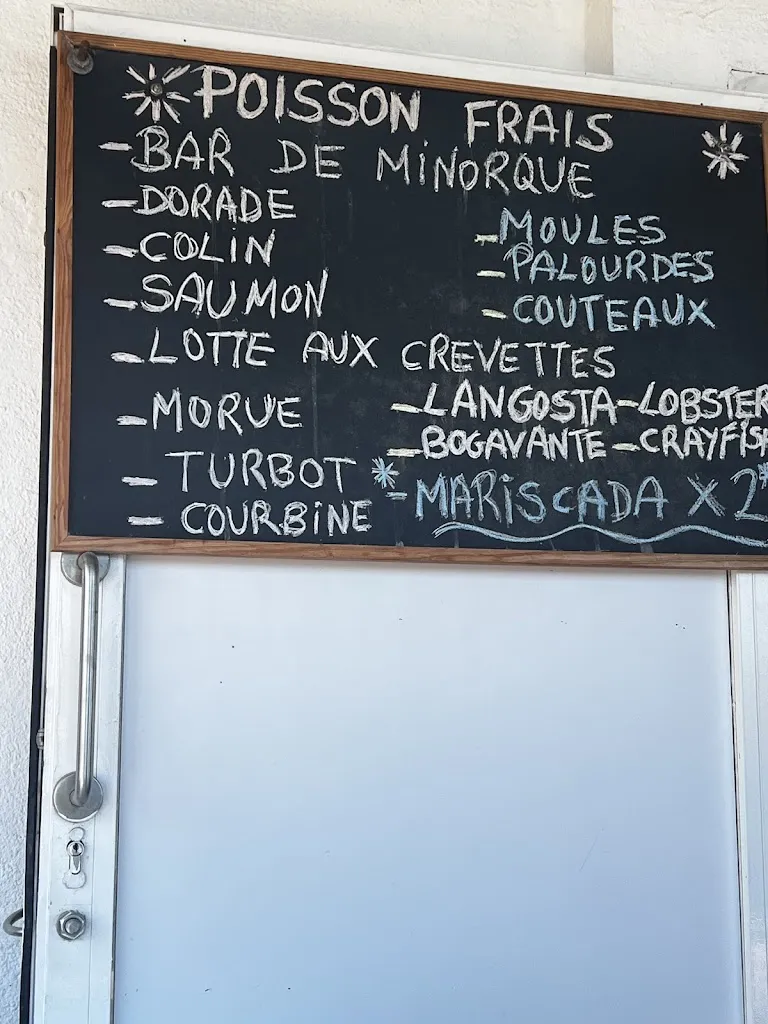 POISSON FRAIS
-BAR DE MINORQUE
-DORADE
-COLIN
-SAUMON
-LOTTE AUX CREVETTES
-MORUE
-TURBOT
-COURBINE
-MOULES
-PALOURDES
-COUTEAUX
-LANGOSTA-LOBSTER
-BOGAVANTE-CRAYFISH
*-MARISCADA X 2*